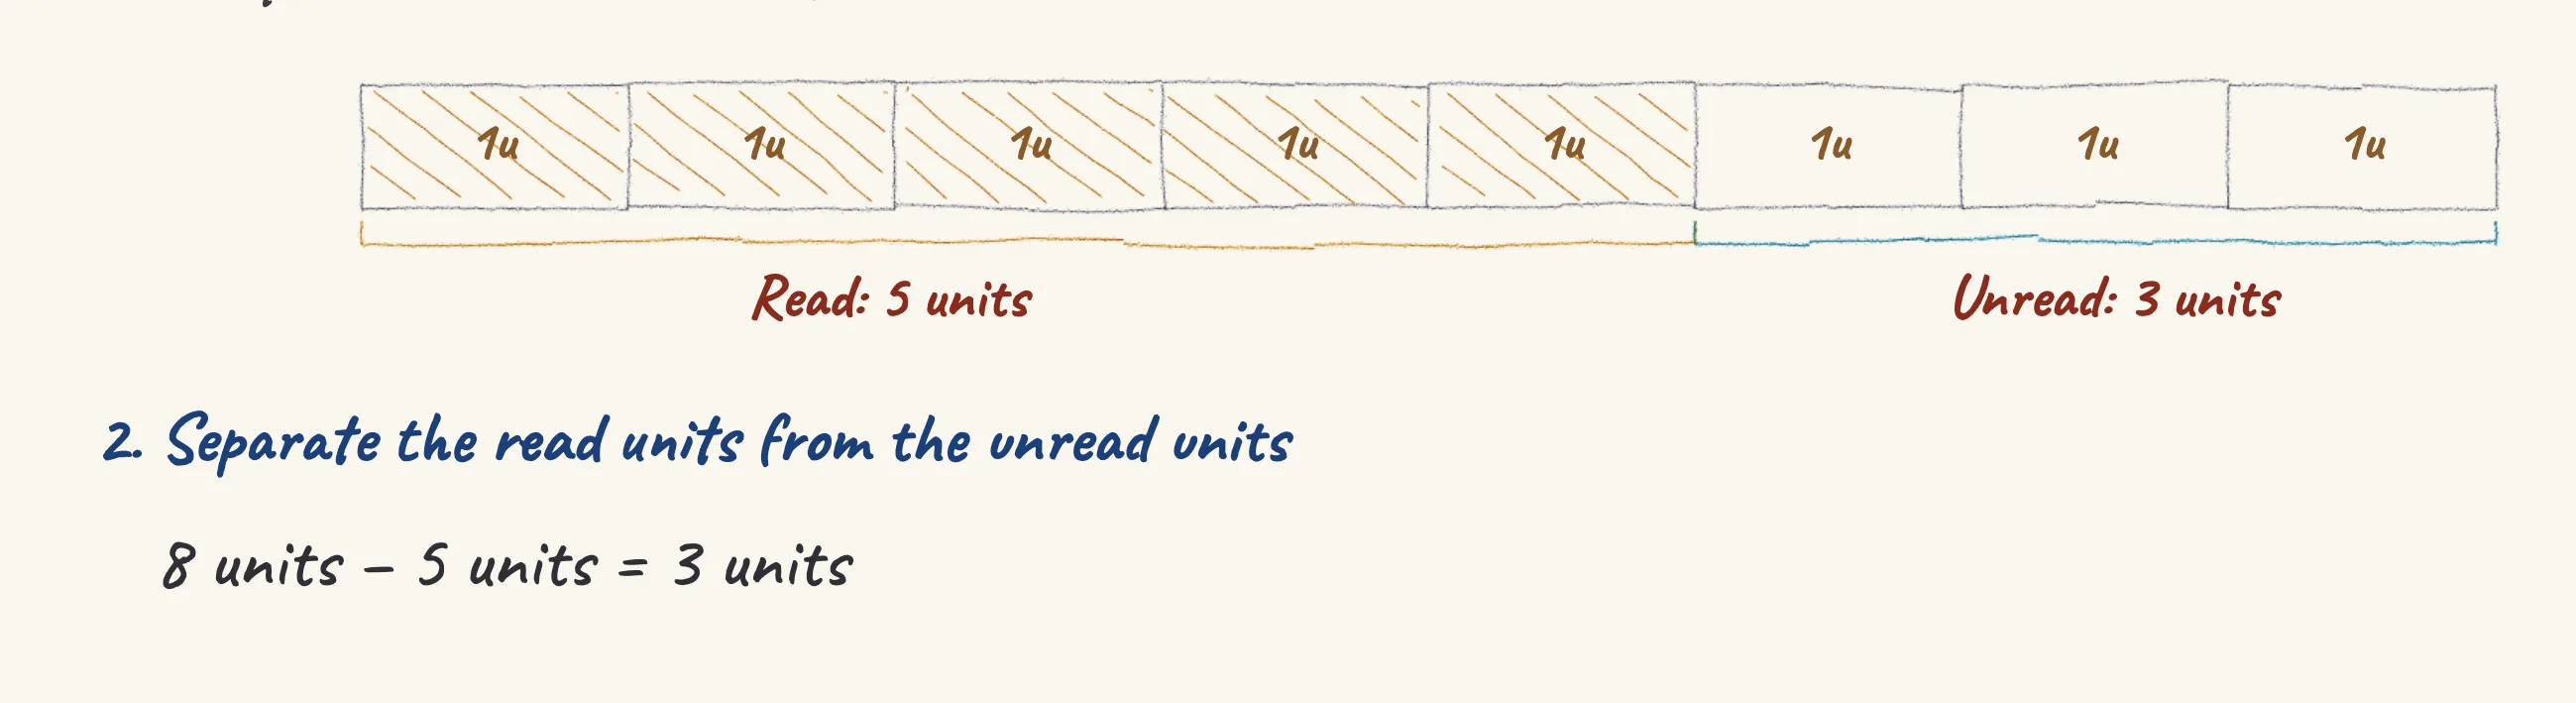 1u 1u 1u 1u 1u 1u 1u 1u
Read: 5 units Unread: 3 units
2. Separate the read units from the unread units
8 units – 5 units = 3 units